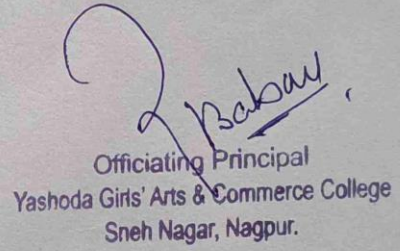 Officiating Principal
Yashoda Girls' Arts & Commerce College
Sneh Nagar, Nagpur.